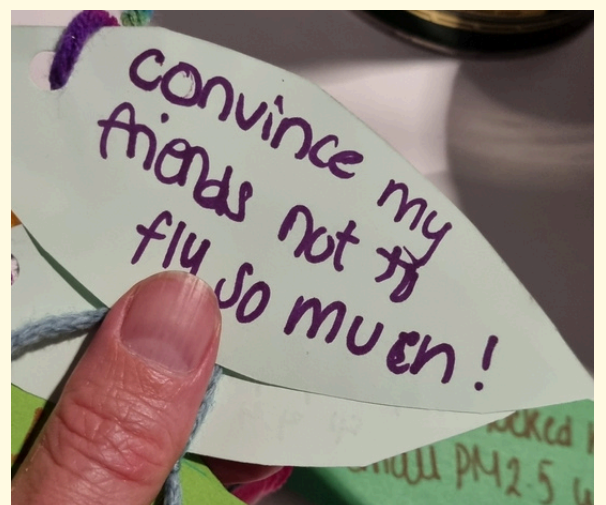 convince my
friends not to
fly so much!
small PM2.5